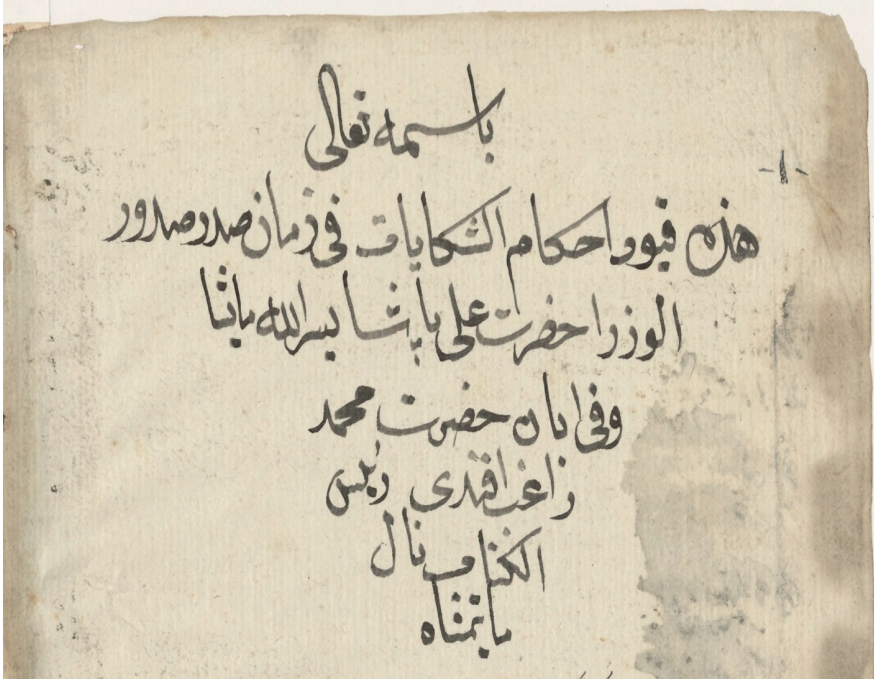 باسمه تعالى
-١-
هذه قيود احكام الشكايات فى زمان صدر صدور
الوزرا حضرت على پاشا يسر الله ما يشا
وفى ابان حضرت محمد
راغب افندى رئيس
الكتاب نال
ما تمناه